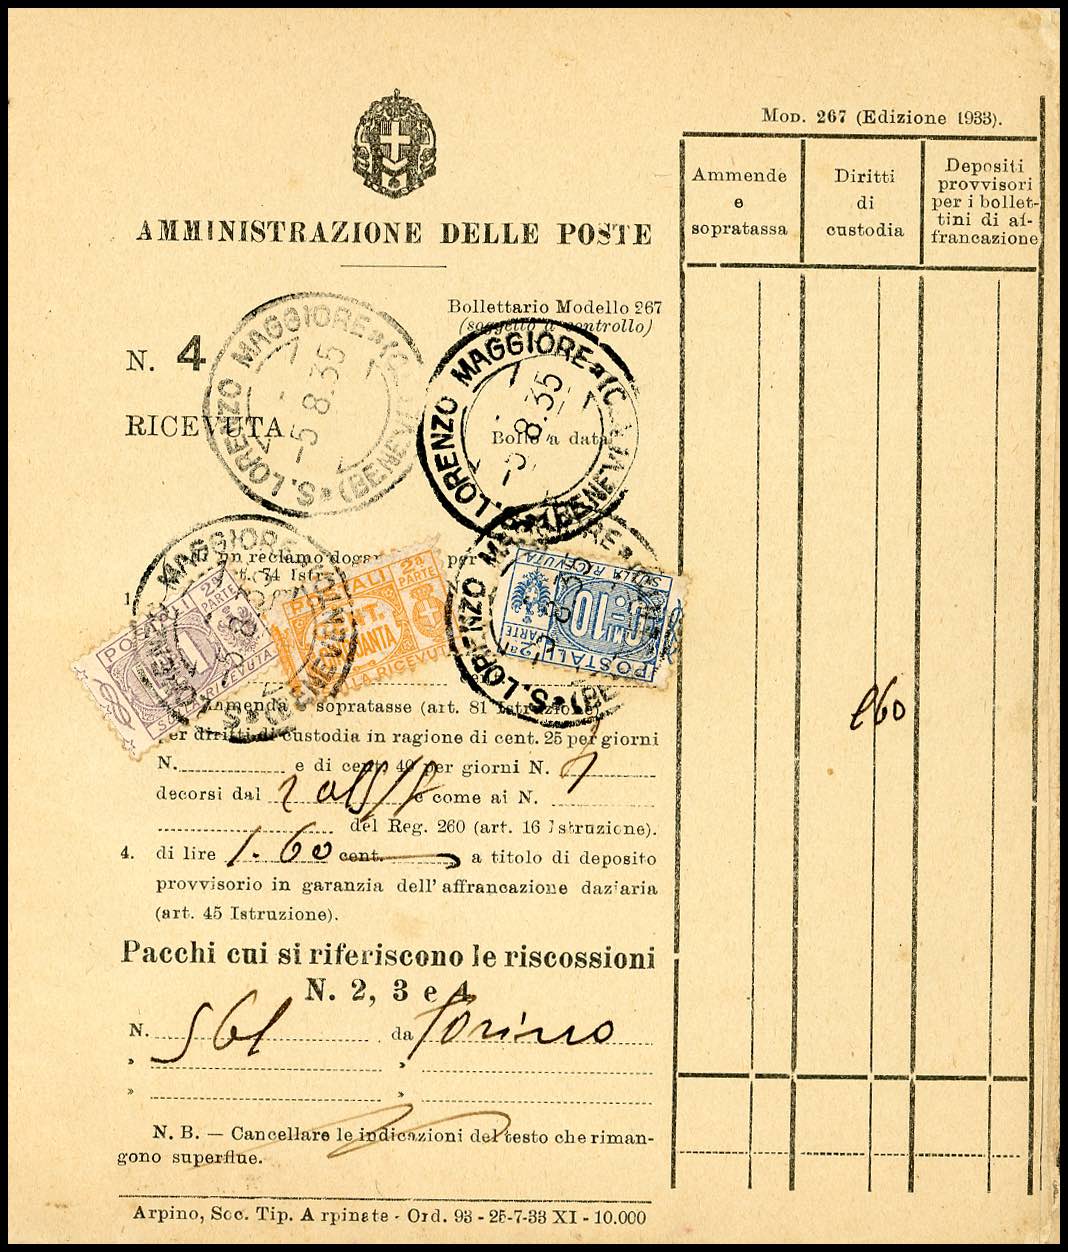 Mod. 267 (Edizione 1933).
Ammende
e
sopratassa
Diritti
di
custodia
Depositi
provvisori
per i bollet-
tini di af-
francazione
AMMINISTRAZIONE DELLE POSTE
Bollettario Modello 267
(soggetto a controllo)
N. 4
RICEVUTA
S. LORENZO MAGGIORE (BENEVENTO)
-5.8.35
Bollo a data
S. LORENZO MAGGIORE (BENEVENTO)
-5.8.35
di un reclamo per
1.
POSTALI 2ª PARTE
1
SULLA RICEVUTA
POSTALI 2ª PARTE
SULLA RICEVUTA
POSTALI 2ª PARTE
10
SULLA RICEVUTA
S. LORENZO MAGGIORE
S. LORENZO MAGGIORE
Ammenda sopratasse (art. 81 Istruzione)
per diritti di custodia in ragione di cent. 25 per giorni
N. e di cent. 40 per giorni N. 4
decorsi dal e come ai N.
del Reg. 260 (art. 16 Istruzione).
4. di lire 1.60 cent. a titolo di deposito
provvisorio in garanzia dell'affrancazione daziaria
(art. 45 Istruzione).
160
Pacchi cui si riferiscono le riscossioni
N. 2, 3 e 4
N. 561 da Torino
» »
» »
N. B. — Cancellare le indicazioni del testo che riman-
gono superflue.
Arpino, Soc. Tip. Arpinate - Ord. 93 - 25-7-33 XI - 10.000